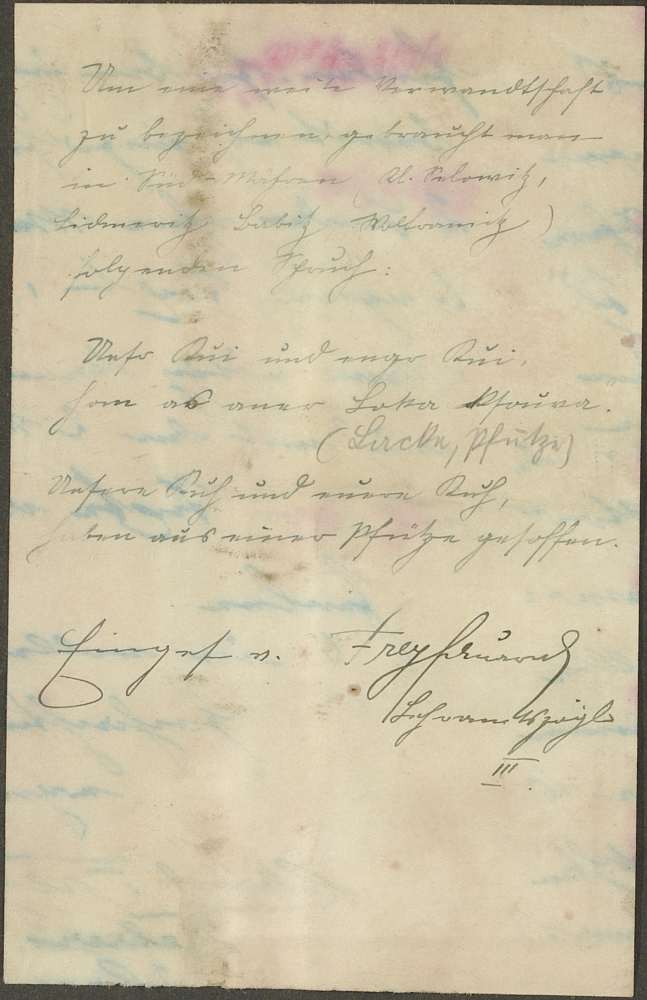 Um eine weite Verwandtschaft
zu bezeichnen, gebraucht man
in Süd-Mähren (Kl. Selowitz,
Lidmeritz Babitz Woltramitz)
folgenden Spruch:
Unsr Kui und engr Kui,
hom as aner Loka gsouva.
(Lacke, Pfütze)
Unsere Kuh und euere Kuh,
haben aus einer Pfütze gesoffen.
Einges v. Frey Eduard
Lehramtszögl
III